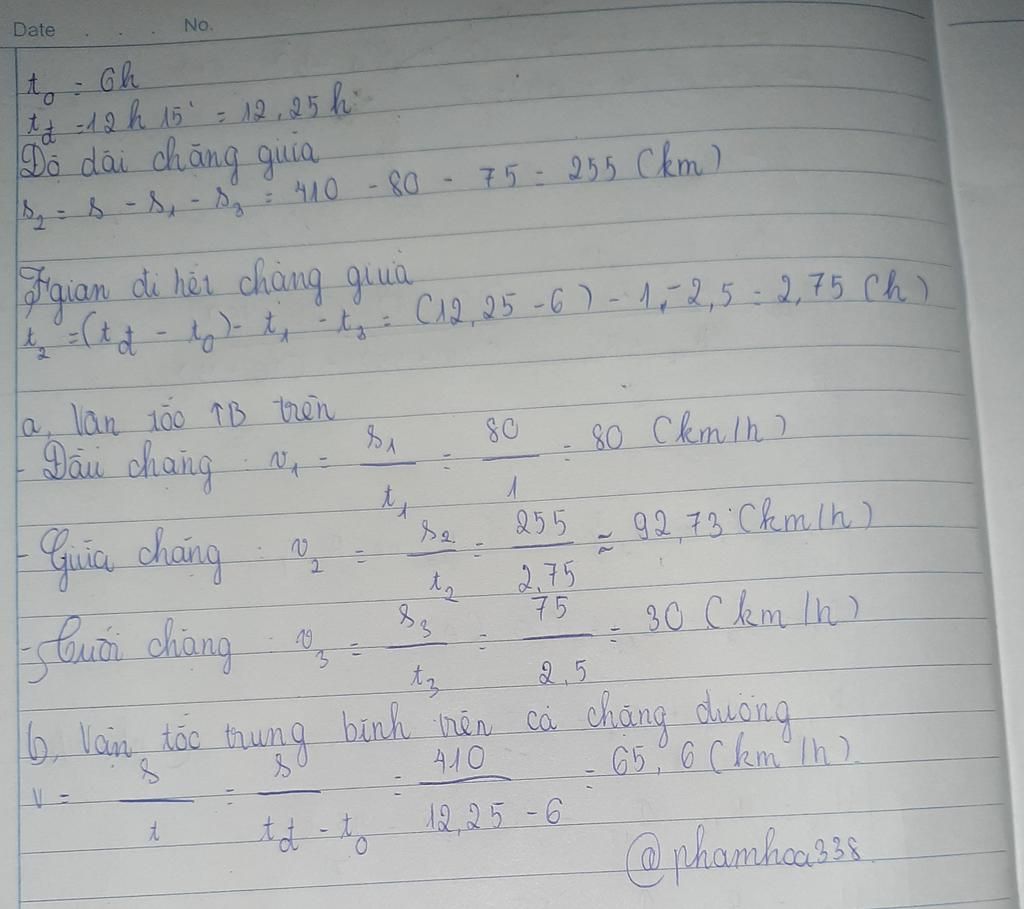 Date . . . No.
t₀ = 6h
t_đ = 12h 15' = 12,25h
Độ dài chặng giữa
s₂ = s - s₁ - s₃ = 410 - 80 - 75 = 255 (km)
Tgian đi hết chặng giữa
t₂ = (t_đ - t₀) - t₁ - t₃ = (12,25 - 6) - 1 - 2,5 = 2,75 (h)
a, Vận tốc TB trên
- Đầu chặng : v₁ = s₁/t₁ = 80/1 = 80 (km/h)
- Giữa chặng : v₂ = s₂/t₂ = 255/2,75 ≈ 92,73 (km/h)
- Cuối chặng : v₃ = s₃/t₃ = 75/2,5 = 30 (km/h)
b, Vận tốc trung bình trên cả chặng đường
v = s/t = s/(t_đ - t₀) = 410/(12,25 - 6) = 65,6 (km/h)
@phamhoa338